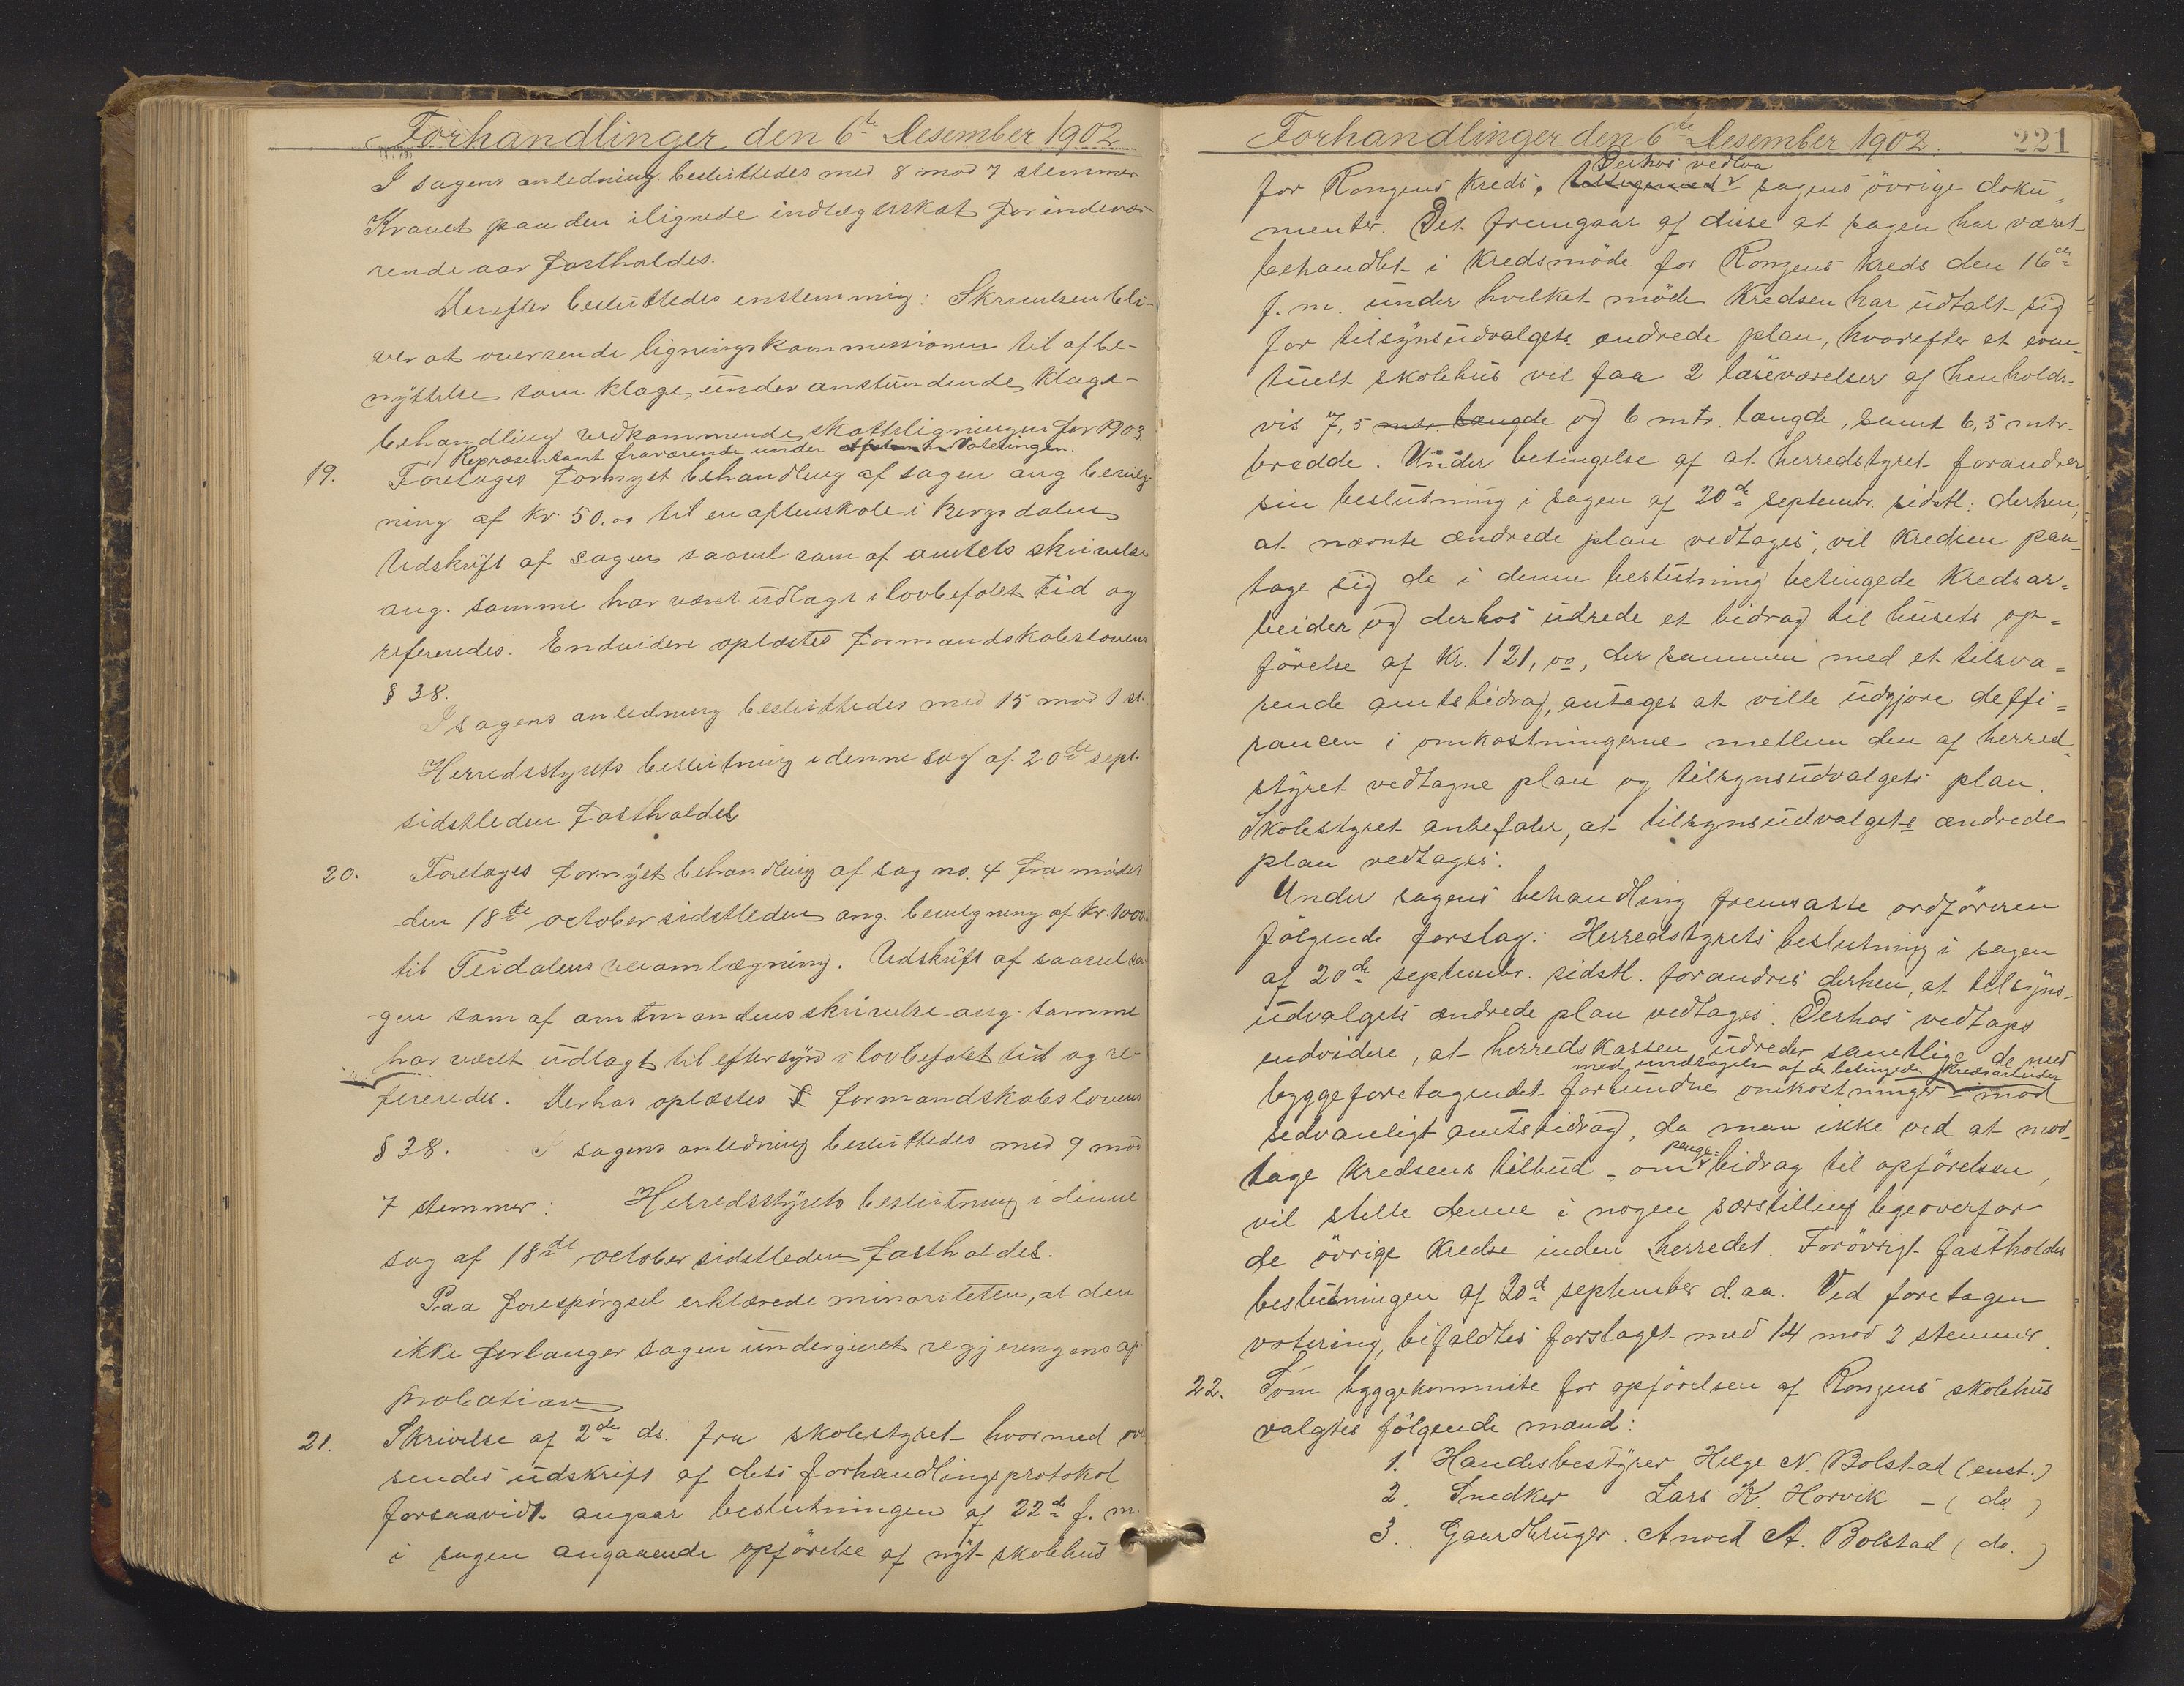 Forhandlinger den 6te Desember 1902
I sagens anledning besluttedes med 8 mod 7 stemmer
Kravet paa den ilignede indtægtsskat for indevæ-
rende aar fastholdes.
Derefter besluttedes enstemmig: Skrivelsen bli-
ver at oversende ligningskommissionen til afbe-
nyttelse som klage under anstundende klage-
behandling vedkommende skatteligningen for 1903.
1 Repræsentant fraværende under Voteringen.
19. Foretages fornyet behandling af sagen ang bevilg-
ning af Kr 50.00 til en aftenskole i Bergsdalen
Udskrift af sagen saavel som af amtets skrivelse
ang. samme har været udlagt i lovbefalet tid og
refereredes. Endvidere oplæstes formandskabslovens
§ 38.
I sagens anledning besluttedes med 15 mod 1 st.
Herredsstyrets beslutning i denne sag af 20de sept.
sidstleden fastholdes
20. Foretages fornyet behandling af sag no. 4 fra mødet
den 18de october sidstleden ang. bevilgning af Kr. 1000
til Teidalens veiomlægning. Udskrift af saavel sa-
gen som af amtmandens skrivelse ang. samme
har været udlagt til eftersyn i lovbefalet tid og re-
fereredes. Derhos oplæstes formandskabslovens
§ 38. I sagens anledning besluttedes med 9 mod
7 stemmer: Herredsstyrets beslutning i denne
sag af 18de october sidstleden fastholdes.
Paa forespørgsel erklærede minoriteten, at den
ikke forlanger sagen undergivet regjeringens ap-
probation
21. Skrivelse af 2den ds. fra skolestyret hvormed over
sendes udskrift af dets forhandlingsprotokol
forsaavidt angaar beslutningen af 22de f. m.
i sagen angaaende opførelse af nyt skolehus
Forhandlinger den 6te Desember 1902. 221
Derhos vedlaa
for Rongens Kreds. sagens øvrige doku-
menter. Det fremgaar af disse at sagen har været
behandlet i Kredsmøde for Rongens Kreds den 16de
f. m. under hvilket møde Kredsen har udtalt sig
for tilsynsudvalgets ændrede plan, hvorefter et even-
tuelt skolehus vil faa 2 læreværelser af henholds-
vis 7,5 mtr. længde og 6 mtr. længde, samt 6,5 mtr.
bredde. Under betingelse af at herredstyret forandrer
sin beslutning i sagen af 20de septembr. sidstl. derhen,
at nævnte ændrede plan vedtages, vil Kredsen paa-
tage sig de i denne beslutning betingede Kredsar-
beider og derhos udrede et bidrag til husets op-
førelse af Kr. 121,00, der sammen med et tilsva-
rende amtsbidrag, antages at ville udgjøre deffi-
rancen i omkostningerne mellem den af herred-
styret vedtagne plan og tilsynsudvalgets plan.
Skolestyret anbefaler, at tilsynsudvalgets ændrede
plan vedtages.
Under sagens behandling fremsatte ordføreren
følgende forslag: Herredstyrets beslutning i sagen
af 20de septembr. sidstl. forandres derhen, at tilsyns-
udvalgets ændrede plan vedtages. Derhos vedtages
endvidere, at herredskassen udreder samtlige de med
med undtagelse af de betingede Kredsarbeider
byggeforetagendet forbundne omkostninger - mod
sedvanligt amtsbidrag, da man ikke ved at mod-
tage Kredsens tilbud - om penge-bidrag til opførelsen,
vil stille denne i nogen særstilling ligeoverfor
de øvrige Kredse inden herredet. Forøvrigt fastholdes
beslutningen af 20de september d. aa. Ved foretagen
votering, bifaldtes forslaget med 14 mod 2 stemmer.
22. Som byggekommite for opførelsen af Rongens skolehus
valgtes følgende mænd:
1. Handesbestyrer Helge N. Bolstad (enst.)
2. Snedker Lars K. Horvik - (do.)
3. Gaardbruger. Anved A. Bolstad (do.)